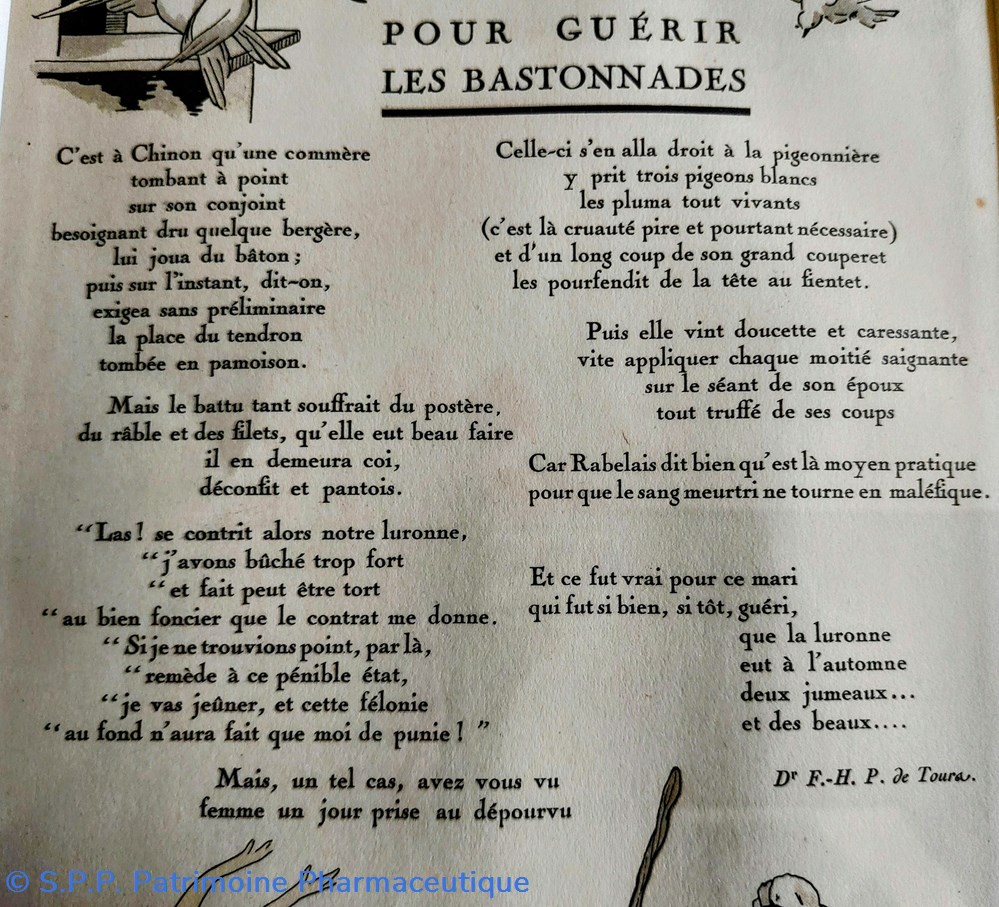 POUR GUÉRIR
LES BASTONNADES
C'est à Chinon qu'une commère
tombant à point
sur son conjoint
besoignant dru quelque bergère,
lui joua du bâton ;
puis sur l'instant, dit-on,
exigea sans préliminaire
la place du tendron
tombée en pamoison.
Mais le battu tant souffrait du postère,
du râble et des filets, qu'elle eut beau faire
il en demeura coi,
déconfit et pantois.
“Las! se contrit alors notre luronne,
“j'avons bûché trop fort
“et fait peut être tort
“au bien foncier que le contrat me donne.
“Si je ne trouvions point, par là,
“remède à ce pénible état,
“je vas jeûner, et cette félonie
“au fond n'aura fait que moi de punie ! ”
Mais, un tel cas, avez vous vu
femme un jour prise au dépourvu
Celle-ci s'en alla droit à la pigeonnière
y prit trois pigeons blancs
les pluma tout vivants
(c'est là cruauté pire et pourtant nécessaire)
et d'un long coup de son grand couperet
les pourfendit de la tête au fientet.
Puis elle vint doucette et caressante,
vite appliquer chaque moitié saignante
sur le séant de son époux
tout truffé de ses coups
Car Rabelais dit bien qu'est là moyen pratique
pour que le sang meurtri ne tourne en maléfique.
Et ce fut vrai pour ce mari
qui fut si bien, si tôt, guéri,
que la luronne
eut à l'automne
deux jumeaux...
et des beaux....
Dr F.-H. P. de Toura.
© S.P.P. Patrimoine Pharmaceutique